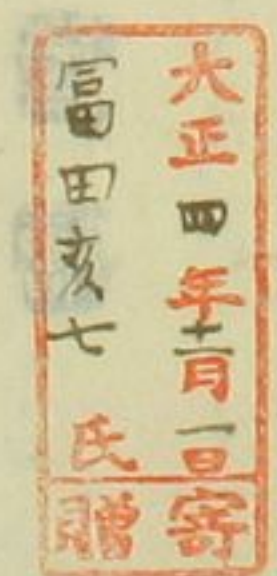 大正四年十一月一日寄
冨田亥七氏贈